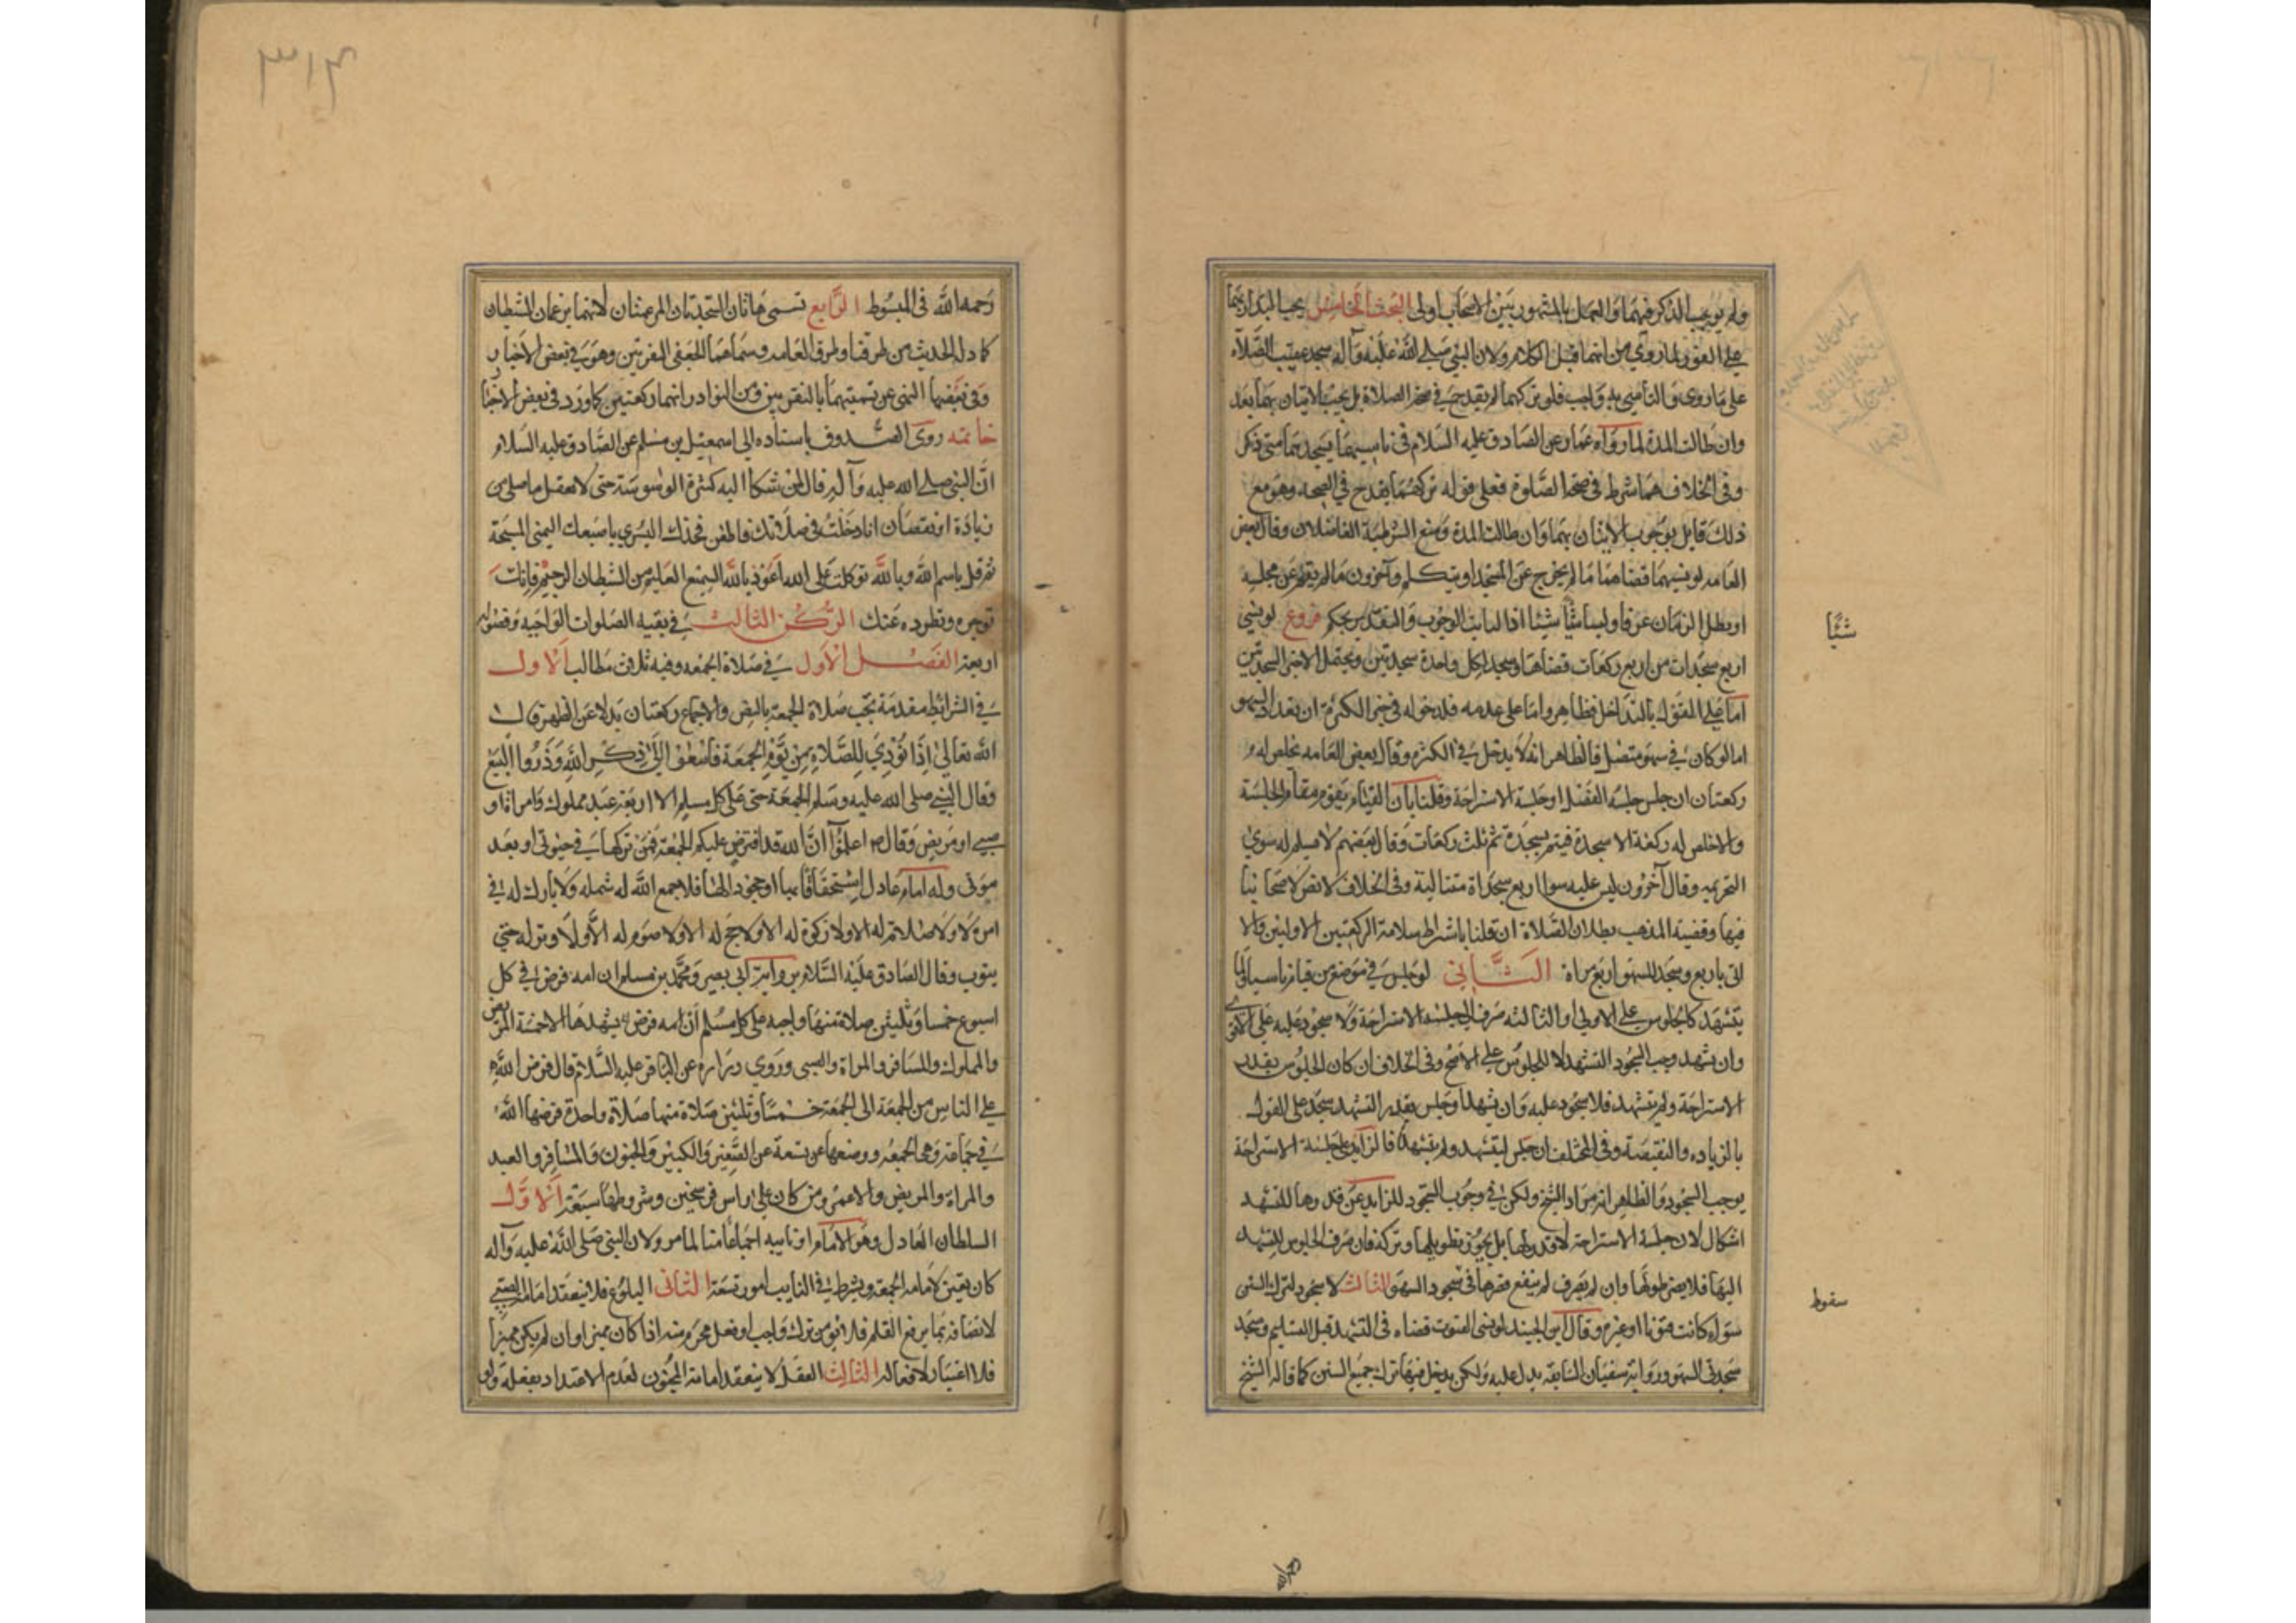 ولم يوجب الذكر فيهما والعمل بالمشهور بين الاصحاب اولى البحث الخامس يجب البدار بهما
على الفور لما روي من انهما قبل الكلام ولان النبي صلى الله عليه وآله سجد عقيب الصلاة
على ما روى والتأسي به واجب فلو تركهما لم يقدح في صحة الصلاة بل يجب الاتيان بهما بعد
وان طالت المدة لما رواه عمار عن الصادق عليه السلام في ناسيهما يسجدهما متى ذكر
وفى الخلاف هما شرط في صحة الصلوة فعلى قوله تركهما يقدح في الصحة وهو مع
ذلك قايل بوجوب الاتيان بهما وان طالت المدة ومنع الشرطية الفاضلان وقال بعض
العامه لو نسيهما قضاهما ما لم يخرج عن المسجد او يتكلم وآخرون ما لم يقم عن مجلسه
او يطل الزمان عرفا وليسا شيئا اذا لبابت الوجوب والتقدير بحكم فروع لو نسي
شيئا
اربع سجدات من اربع ركعات قضاها وسجد لكل واحدة سجدتين ويحتمل الاجتزا بسجدتين
اما على القول بالتداخل فظاهر واما على عدمه فلدخوله في حيز الكثرة ان بعد السهو
اما لو كان في سهو متصل فالظاهر انه لا يدخل في الكثرة وقال بعض العامه يخلص له
ركعتان ان جلس جلسة الفصل او جلسة الاستراحة وقلنا بان القيام يقوم مقام الجلسة
والا خلص له ركعة الا سجدة فيتم بسجدة ثم ثلث ركعات وقال بعضهم لا يسلم له سوى
التحريمه وقال آخرون ليس عليه سوا اربع سجداة متتالية وفى الخلاف لا نص لاصحابنا
فيها وقضية المذهب بطلان الصلاة ان قلنا باشتراط سلامة الركعتين الاوليتين والا
اتى باربع وسجد للسهو اربع مراة الثاني لو جلس في موضع من قيام ناسيا ولما
يتشهد كالجلوس على الاولى او الثالثه صرف الى جلسه الاستراحة ولا سجود عليه على الاقوى
وان تشهد وجب السجود للتشهد لا للجلوس على الاصح وفى الخلاف ان كان الجلوس بقدر
الاستراحة ولم يتشهد فلا سجود عليه وان تشهد او جلس بقدر التشهد سجد على القول
بالزياده والنقيصة وفى المختلف ان جلس ليتشهد ولم يتشهد فالزايد على جلسة الاستراحة
يوجب السجود والظاهر انه مراد الشيخ ولكن في وجوب السجود للزايد عن قدرها للتشهد
اشكال لان جلسة الاستراحة لا قدر لها بل يجوز تطويلها وتركه فان صرف الجلوس للتشهد
اليها فلا يضر طولها وان لم يصرف لم ينفع قصرها فى سجود السهو الثالث لا سجود لترك السنن
سقوط
سواء كانت قنوتا او غيره وقال ابن الجنيد لو نسى القنوت قضاه فى التشهد قبل التسليم وسجد
سجدتي السهو ورواية سفيان السابقة يدل عليه ولكن يدخل فيها ترك جميع السنن كما قاله الشيخ
٣١٤
رحمه الله فى المبسوط الرابع تسمى هاتان السجدتان المرغمتان لانهما يرغمان الشيطان
كما دل الحديث من طرقنا وطرق العامه وسماهما الجعفى النقرتين وهو في بعض الاخبار
وفى بعضها النهى عن تسميتهما بالنقرتين ومن النوادر انهما ركعتين كما ورد في بعض الاخبار
خاتمه روى الصدوق باسناده الى اسمعيل بن مسلم عن الصادق عليه السلام
ان النبي صلى الله عليه وآله قال لمن شكا اليه كثرة الوسوسة حتى لا يعقل ما صلى من
زيادة او نقصان اذا دخلت في صلاتك فاطعن فخذك اليسرى باصبعك اليمنى المسبحة
ثم قل باسم الله وبالله توكلت على الله اعوذ بالله السميع العليم من الشيطان الرجيم فانك
توجره وتطرده عنك الركن الثالث في بقيه الصلوات الواجبه وفصوله
اربعة الفصل الاول في صلاة الجمعه وفيه ثلاث مطالب الاول
في الشرائط مقدمة تجب صلاة الجمعة بالنص والاجماع ركعتان بدلا عن الظهر قال
الله تعالى اذا نودي للصلاة من يوم الجمعة فاسعوا الى ذكر الله وذروا البيع
وقال النبي صلى الله عليه وسلم الجمعة حق على كل مسلم الا اربعة عبد مملوك وامراة او
صبي او مريض وقال ص اعلموا ان الله قد افترض عليكم الجمعة فمن تركها في حيوتى او بعد
موتى وله امام عادل استخفافا بها او جحودا لها فلا جمع الله له شمله ولا بارك له في
امره الا ولا صلاة له الا ولا زكوة له الا ولا حج له الا ولا صوم له الا ولا بر له حتى
يتوب وقال الصادق عليه السلام برواية ابى بصير ومحمد بن مسلم ان الله فرض في كل
اسبوع خمسا وثلثين صلاة منها واجبه على كل مسلم ان يشهدها الا خمسة المريض
والمملوك والمسافر والمراة والصبى وروي زراره عن الباقر عليه السلام قال فرض الله
على الناس من الجمعة الى الجمعة خمسا وثلثين صلاة منها صلاة واحدة فرضها الله
في جماعة وهى الجمعه ووضعها عن تسعة عن الصغير والكبير والمجنون والمسافر والعبد
والمراة والمريض والاعمى ومن كان على راس فرسخين وشروطها سبعة الاول
السلطان العادل وهو الامام او نايبه اجماعا منا لما مر ولان النبى صلى الله عليه وآله
كان يعين لامامه الجمعه ويشترط في النايب امور تسعة الثانى البلوغ فلا ينعقد امامة الصبي
لاتصافه بما يرفع القلم فلا يؤمن ترك واجب او فعل محرم منه اذا كان مميزا وان لم يكن مميزا
فلا اعتبار لافعاله الثالث العقل لا ينعقد امامة المجنون لعدم الاعتداد بفعله ولو